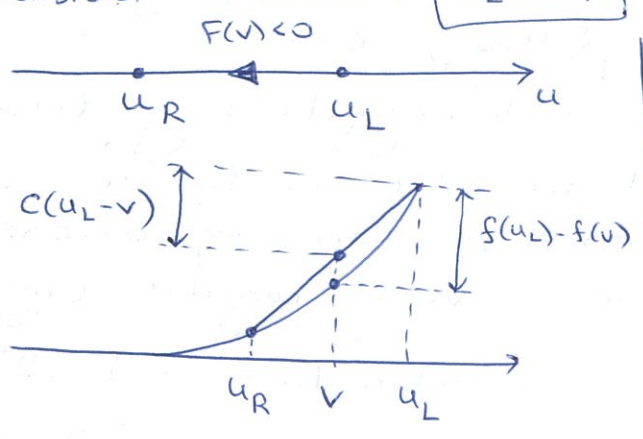 F(v)<0
u_R u_L u
C(u_L-v) f(u_L)-f(v)
u_R v u_L